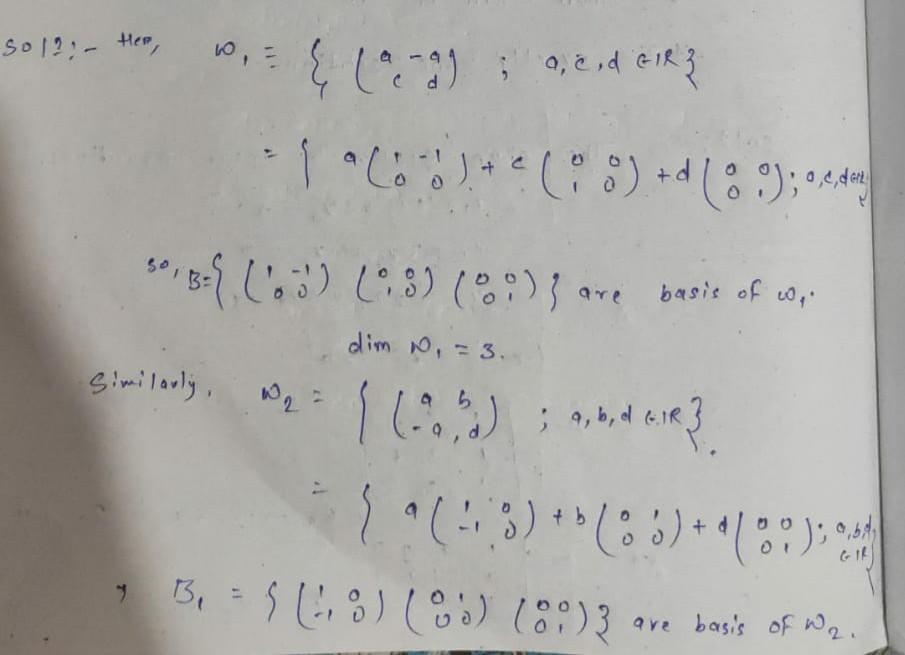 Sol?:- Here, W₁ = { (a -a; c d) ; a, c, d ∈ IR }
= { a (1 -1; 0 0) + c (0 0; 1 0) + d (0 0; 0 1) ; a, c, d ∈ IR }
So, B = { (1 -1; 0 0) (0 0; 1 0) (0 0; 0 1) } are basis of W₁.
dim W₁ = 3.
Similarly, W₂ = { (a b; -a, d) ; a, b, d ∈ IR }.
= { a (1 0; -1 0) + b (0 1; 0 0) + d (0 0; 0 1) ; a, b, d ∈ IR }
B₁ = { (1 0; -1 0) (0 1; 0 0) (0 0; 0 1) } are basis of W₂.